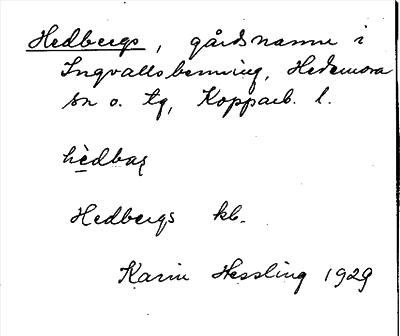 Hedbergs, gårdsnamn i
Ingvallsbenning, Hedemora
sn o. tg, Kopparb. l.
Hedbergs kb.
Karin Hessling 1929